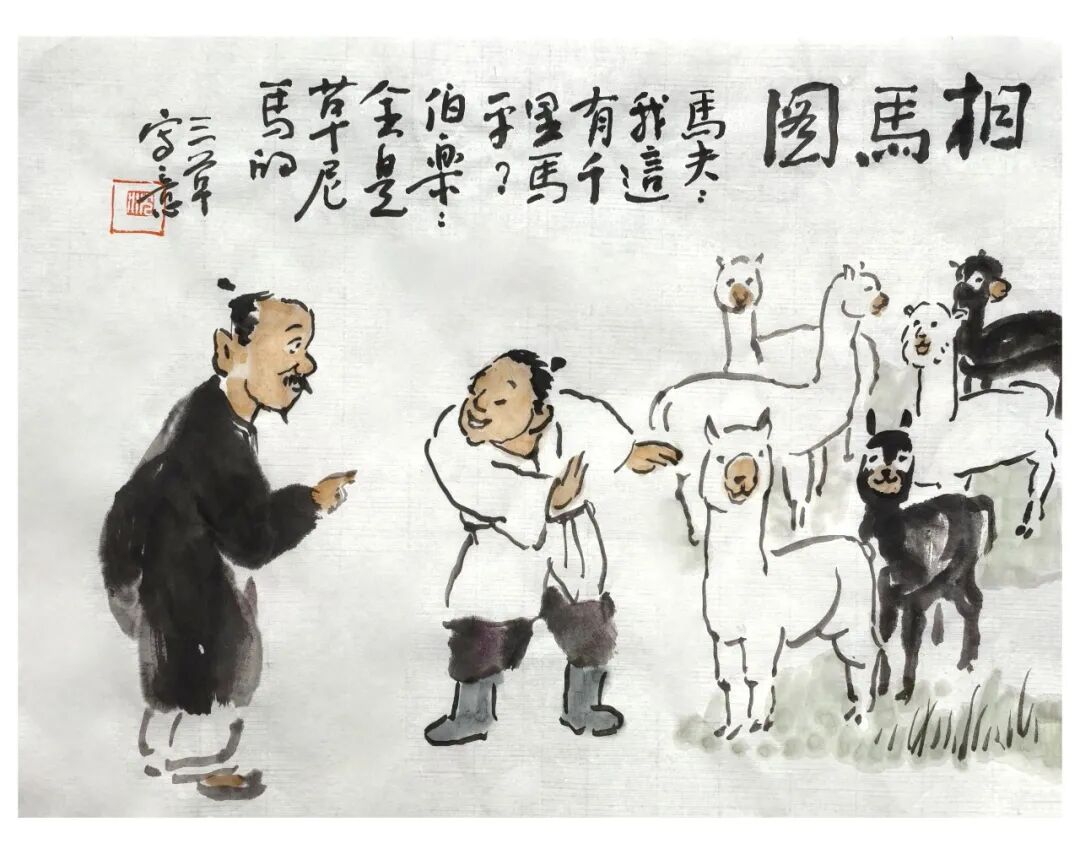 相馬图
馬夫：
我這
有千
里馬
乎？
伯樂：
全是
草尼
馬的
三草
写意